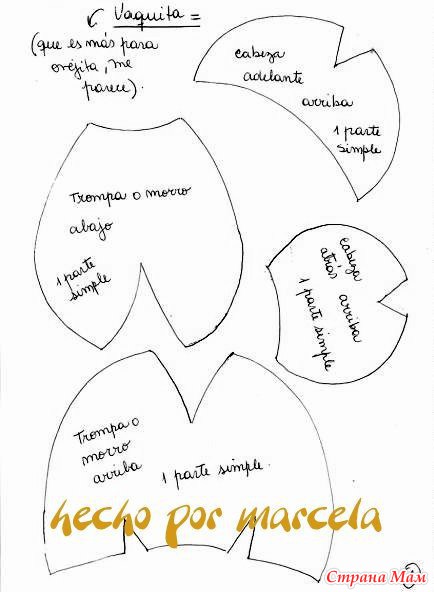 Vaquita =
(que es más para
orejita, me
parece).
cabeza
adelante
arriba
1 parte
simple
Trompa o morro
abajo
1 parte
simple
cabeza
atrás arriba
1 parte simple
Trompa o
morro
arriba
1 parte simple.
hecho por marcela
Страна Мам